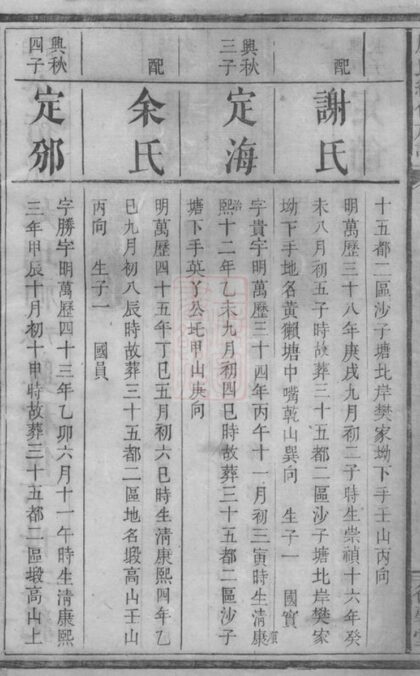 十五都二區沙子塘北岸樊家坳下手壬山丙向
配
謝氏
明萬歷三十八年庚戌九月初二子時生崇禎十六年癸
未八月初五子時故葬三十五都二區沙子塘北岸樊家
坳下手地名黃獺塘中嘴乾山巽向 生子一 國實
興秋
三子
定海
字貴字明萬歷三十四年丙午十一月初三寅時生清康
熙十二年乙未九月初四巳時故葬三十五都二區沙子
塘下手英丫公坵甲山庚向
配
余氏
明萬歷四十五年丁巳五月初六巳時生清康熙四年乙
巳九月初八辰時故葬三十五都二區地名塅高山壬山
丙向 生子一 國員
興秋
四子
定邠
字勝字明萬歷四十三年乙卯六月十一午時生清康熙
三年甲辰十月初十申時故葬三十五都二區塅高山上